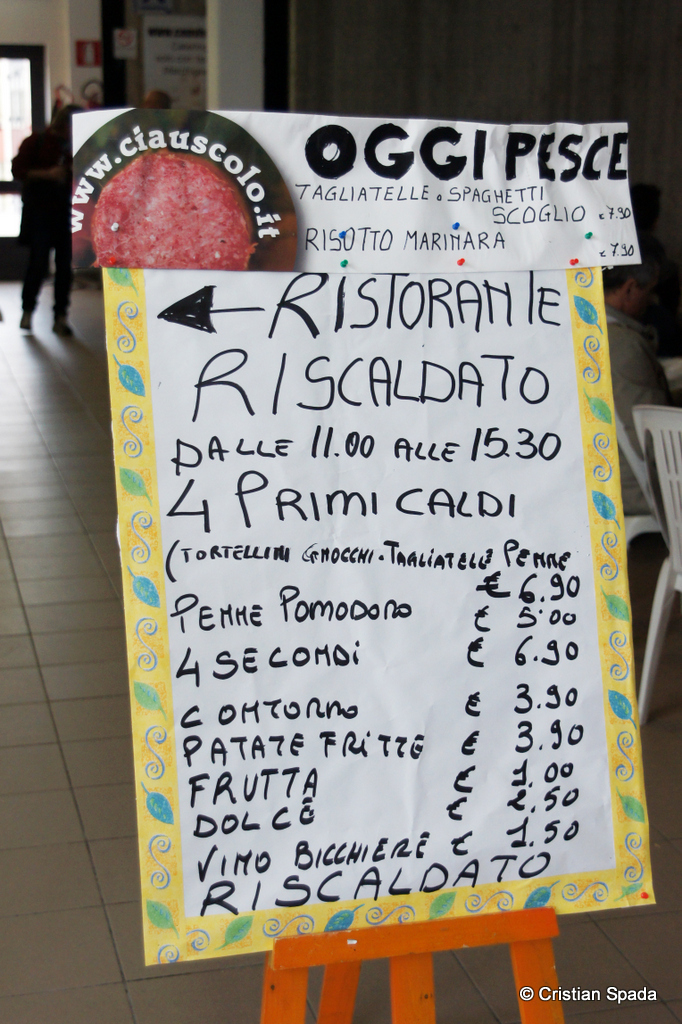 www.ciauscolo.it
OGGI PESCE
TAGLIATELLE o SPAGHETTI
SCOGLIO € 7.90
RISOTTO MARINARA
€ 7.90
RISTORANTE
RISCALDATO
DALLE 11.00 ALLE 15.30
4 PRIMI CALDI
(TORTELLINI GNOCCHI - TAGLIATELLE PENNE
€ 6.90
PENNE POMODORO € 5.00
4 SECONDI € 6.90
CONTORNO € 3.90
PATATE FRITTE € 3.90
FRUTTA € 1.00
DOLCE € 2.50
VINO BICCHIERE € 1.50
RISCALDATO
© Cristian Spada